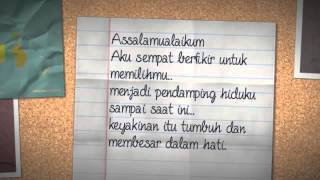 Assalamualaikum
Aku sempat berfikir untuk
memilihmu..
menjadi pendamping hiduku
sampai saat ini..
keyakinan itu tumbuh dan
membesar dalam hati.